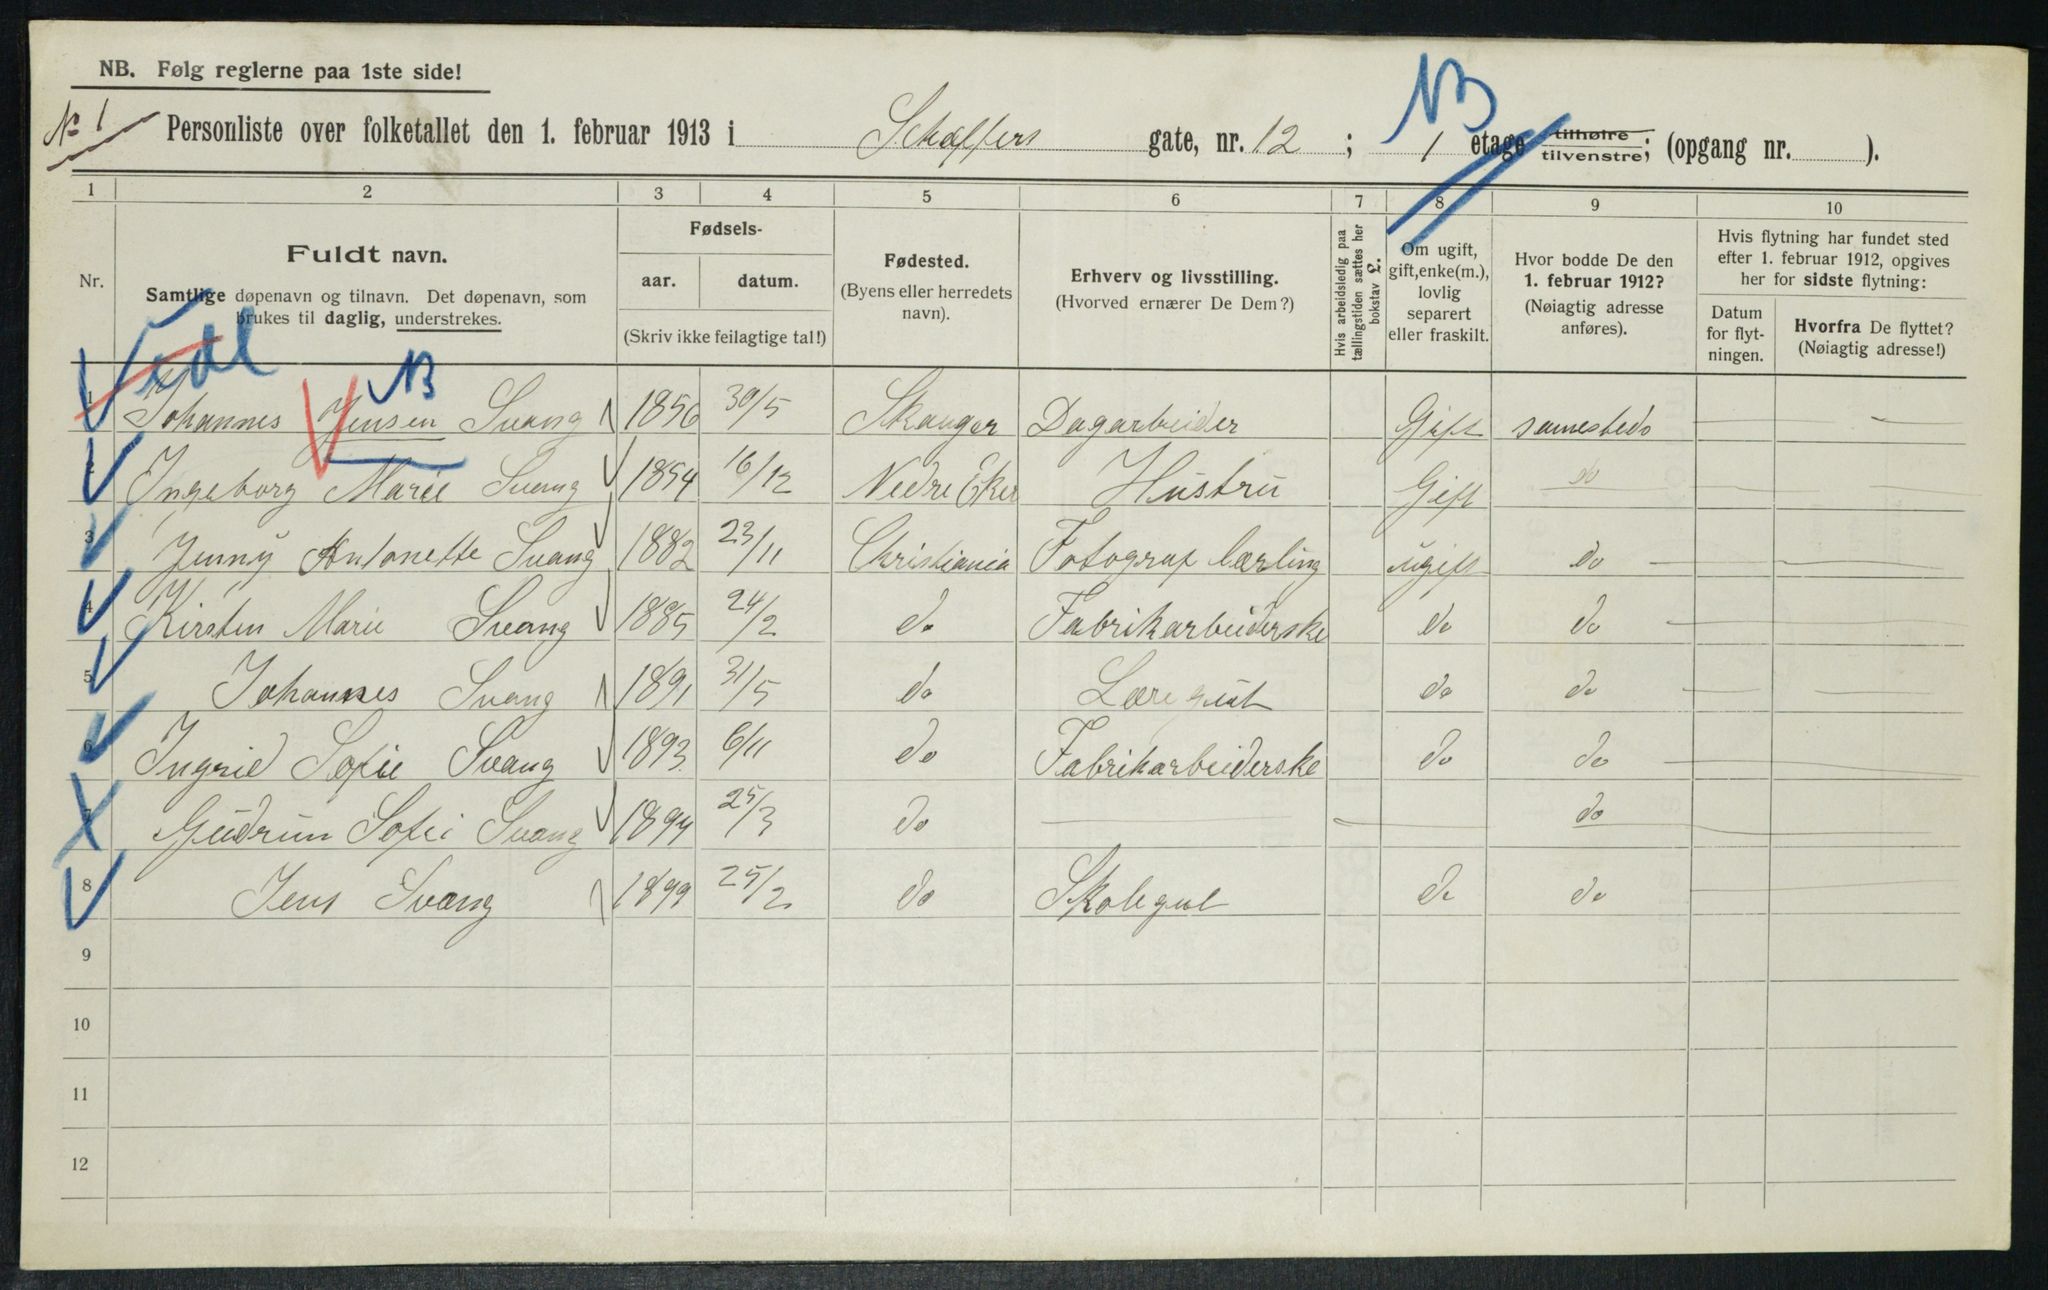 NB. Følg reglerne paa 1ste side!
No 1
NB
Personliste over folketallet den 1. februar 1913 i Schæffers gate, nr. 12; 1 etage tilhøire tilvenstre; (opgang nr. ).
1 2 3 4 5 6 7 8 9 10
Nr.
Fuldt navn.
Samtlige døpenavn og tilnavn. Det døpenavn, som
brukes til daglig, understrekes.
Fødsels-
aar. datum.
(Skriv ikke feilagtige tal!)
Fødested.
(Byens eller herredets
navn).
Erhverv og livsstilling.
(Hvorved ernærer De Dem?)
Hvis arbeidsledig paa
tællingstiden sættes her
bokstav L.
Om ugift,
gift, enke(m.),
lovlig
separert
eller fraskilt.
Hvor bodde De den
1. februar 1912?
(Nøiagtig adresse
anføres).
Hvis flytning har fundet sted
efter 1. februar 1912, opgives
her for sidste flytning:
Datum
for flyt-
ningen.
Hvorfra De flyttet?
(Nøiagtig adresse!)
NB
1 Johannes Jensen Svang 1856 30/5 Skauger Dagarbeider Gift samesteds
2 Ingeborg Marie Svang 1854 16/12 Nedre Eker Hustru Gift do
3 Jenny Antonette Svang 1882 23/11 Christiania Fotograf lærling ugift do
4 Kirsten Marie Svang 1885 24/2 do Fabrikarbeiderske do do
5 Johannes Svang 1891 31/5 do Læregut do do
6 Ingrid Sofie Svang 1893 6/11 do Fabrikarbeiderske do do
7 Gudrun Sofie Svang 1894 25/3 do do
8 Jens Svang 1899 25/2 do Skolegut do do
9
10
11
12